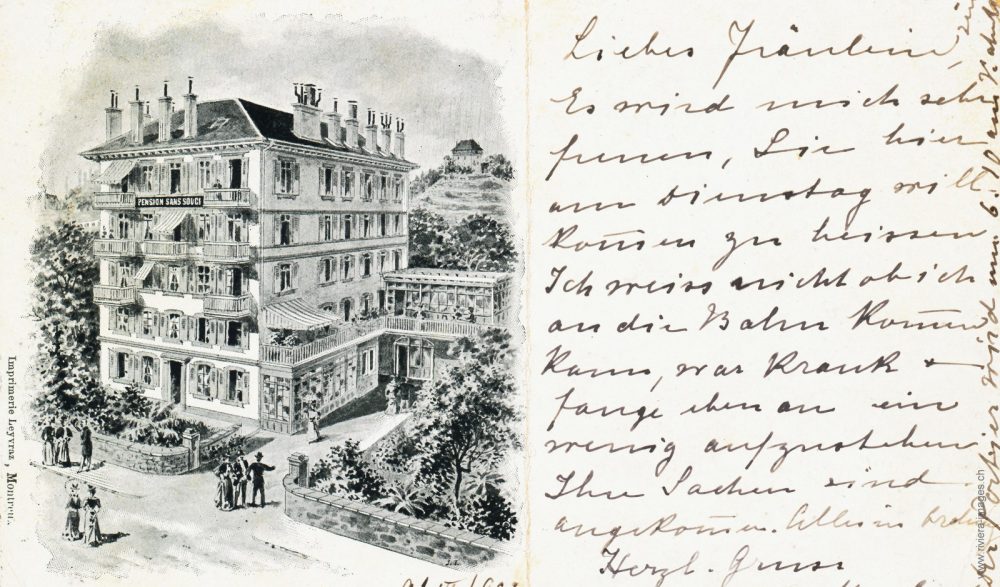 PENSION SANS SOUCI
Imprimerie Leyvraz, Montreux.
Liebes Fräulein,
Es wird mich sehr
freuen, Sie hier
am Dienstag will
kom̄en zu heissen
Ich weiss nicht ob ich
an die Bahn kom̄en
kann, war krank &
fange eben an ein
wenig aufzustehen
Ihre Sachen sind
angekom̄en. Alles in
Herzl. Gruss
wird um 6.10
www.riviera-images.ch